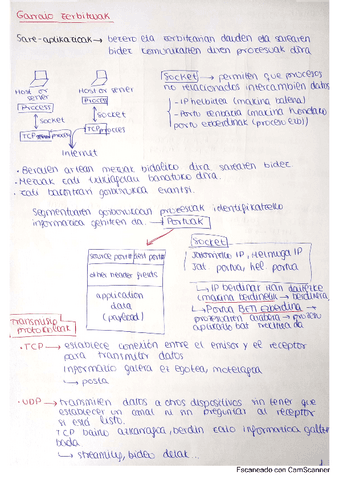 Garraio zerbitzuak
Sare-aplikazioak → bezero eta zerbitzarian dauden eta sarearen
bidez komunikatzen diren prozesuak dira
Host or server
Host or server
Process
Process
Socket
Socket
TCP
TCP
Internet
Socket → permiten que procesos
no relacionados intercambien datos
- IP helbidea (makina batena)
- Portu zenbakia (makina horretako
portu ezberdinak (prozesu
• Beraien artean mezuak bidaliko dira sarearen bidez
• Mezuak banatuko dira.
• goiburukoa erantsi.
Segmentuaren goiburukoan prozesuak identifikatzeko
informazioa gehitzen da. → Portuak
source port# dest port#
other header fields
application
data
(payload)
Socket
Jatorrizko IP, Helmuga IP
Jat portua, hel portua
↳ IP berdinak izan daitezke
(makina berdinetik → berdinera)
↳ Portua BETI ezberdina →
prozesuaren arabera →
aplikazio bat
Transmisio
protokoloak
• TCP → establece conexión entre el emisor y el receptor
para transmitir datos
Informazio galera ez egotea, motelagoa
↳ posta
• UDP → transmiten datos a otros dispositivos sin tener que
establecer un canal ni sin preguntar al receptor
si está listo.
TCP baino azkarragoa, berdin zaio informazioa galtzen
bada
↳ streaming, bideo deiak...
1
Escaneado con CamScanner